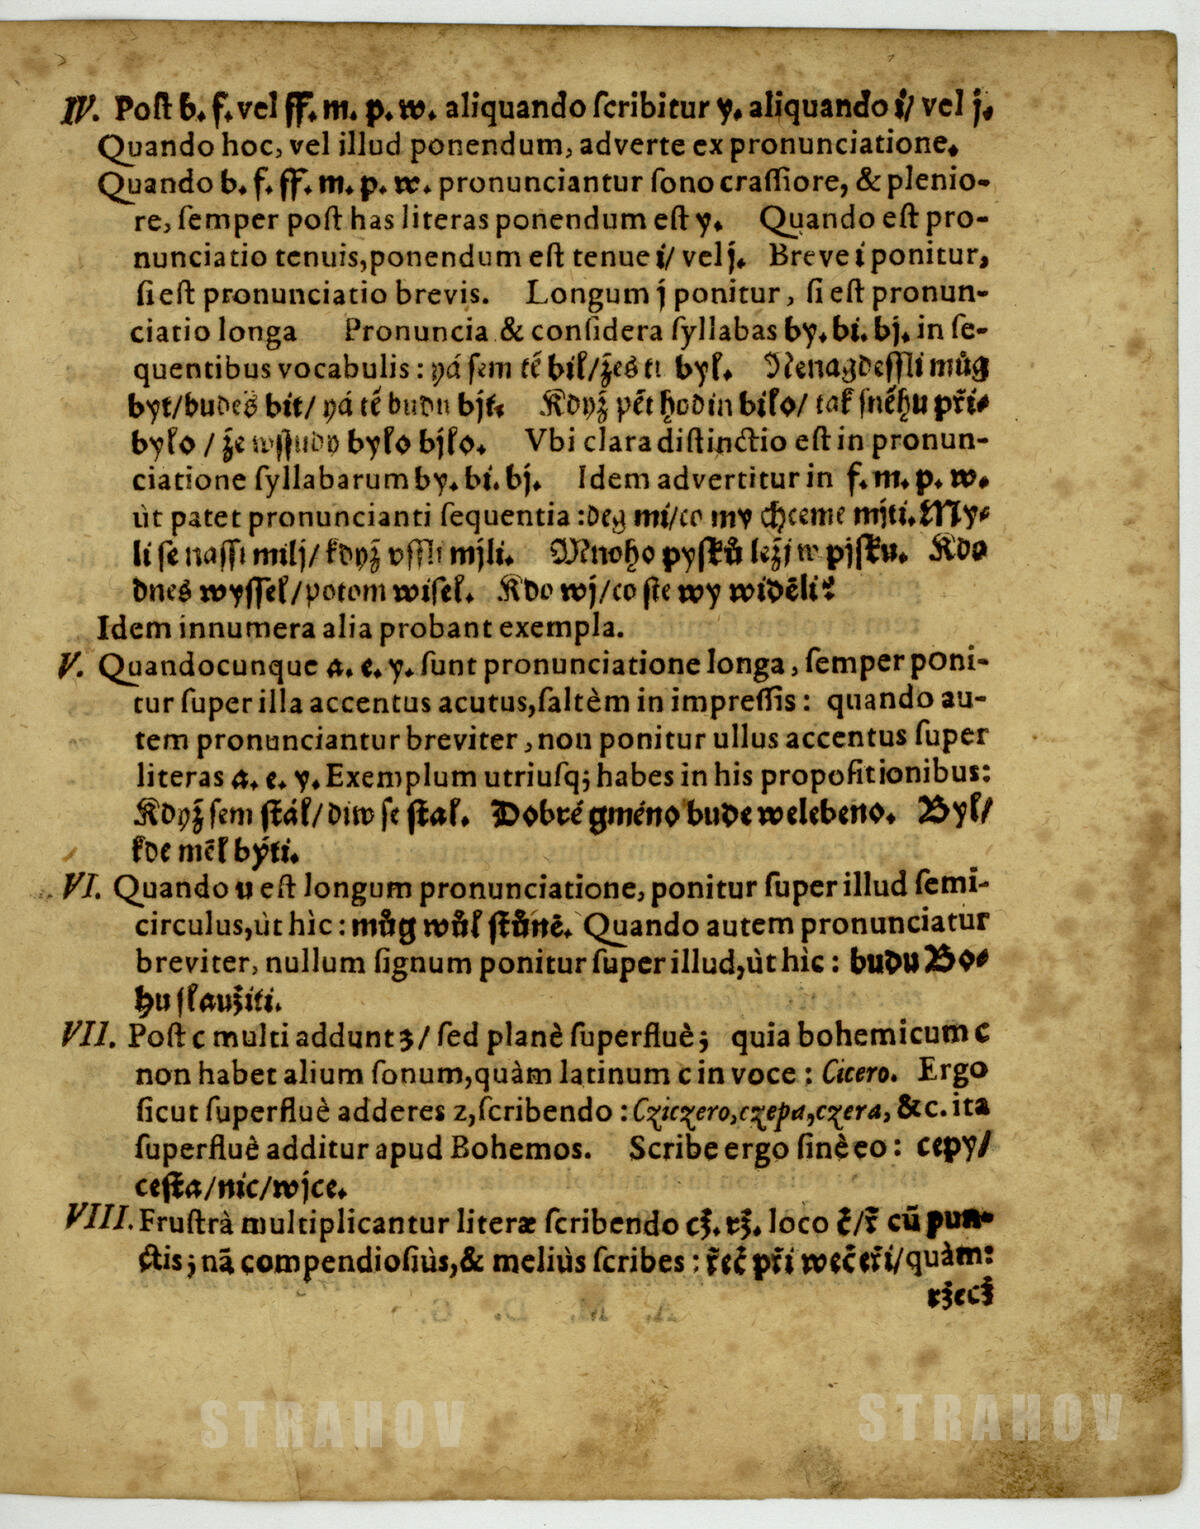 IV. Poſt b. f. vel ff. m. p. w. aliquando ſcribitur y. aliquando i/ vel j.
Quando hoc, vel illud ponendum, adverte ex pronunciatione.
Quando b. f. ff. m. p. w. pronunciantur ſono craſſiore, & plenio-
re, ſemper poſt has literas ponendum eſt y. Quando eſt pro-
nunciatio tenuis, ponendum eſt tenue i/ vel j. Breve i ponitur,
ſi eſt pronunciatio brevis. Longum j ponitur, ſi eſt pronun-
ciatio longa Pronuncia & conſidera ſyllabas by. bi. bj. in ſe-
quentibus vocabulis: yá ſem tě bil/ žes ti byl. Nenagdeſſli můg
byt/ budeš bit/ yá tě budu bjt. Když pět hodin bilo/ tak ſněhu při-
bylo / že wſſudy bylo bjlo. Vbi clara diſtinctio eſt in pronun-
ciatione ſyllabarum by. bi. bj. Idem advertitur in f. m. p. w.
ùt patet pronuncianti ſequentia: deg mi/ co my chceme mjti. My-
li ſe naſſi milj/ když vſſli mjli. Mnoho pyſků ležj w pjſku. Kdo
dnes wyſſel/ potom wiſel. Kdo wj/ co ſte wy widěli?
Idem innumera alia probant exempla.
V. Quandocunque a. e. y. ſunt pronunciatione longa, ſemper poni-
tur ſuper illa accentus acutus, ſaltèm in impreſſis: quando au-
tem pronunciantur breviter, non ponitur ullus accentus ſuper
literas a. e. y. Exemplum utriuſq; habes in his propoſitionibus:
Když ſem ſtál/ diw ſe ſtal. Dobré gméno bude welebeno. Byl/
kde měl býti.
VI. Quando u eſt longum pronunciatione, ponitur ſuper illud ſemi-
circulus, ùt hìc: můg wůl ſtůně. Quando autem pronunciatur
breviter, nullum ſignum ponitur ſuper illud, ùt hìc: budu Bo-
hu ſlaužiti.
VII. Poſt c multi addunt z/ ſed planè ſuperfluè; quia bohemicum c
non habet alium ſonum, quàm latinum c in voce: Cicero. Ergo
ſicut ſuperfluè adderes z, ſcribendo: Cziczero, czepa, czera, &c. ita
ſuperfluè additur apud Bohemos. Scribe ergo ſinè eo: cepy/
ceſta/ nic/ wjce.
VIII. Fruſtrà multiplicantur literæ ſcribendo cž. rž. loco č/ ř cū pun-
ctis; nā compendioſiùs, & meliùs ſcribes: řeč při wečeři/ quàm:
ržecž
STRAHOV STRAHOV